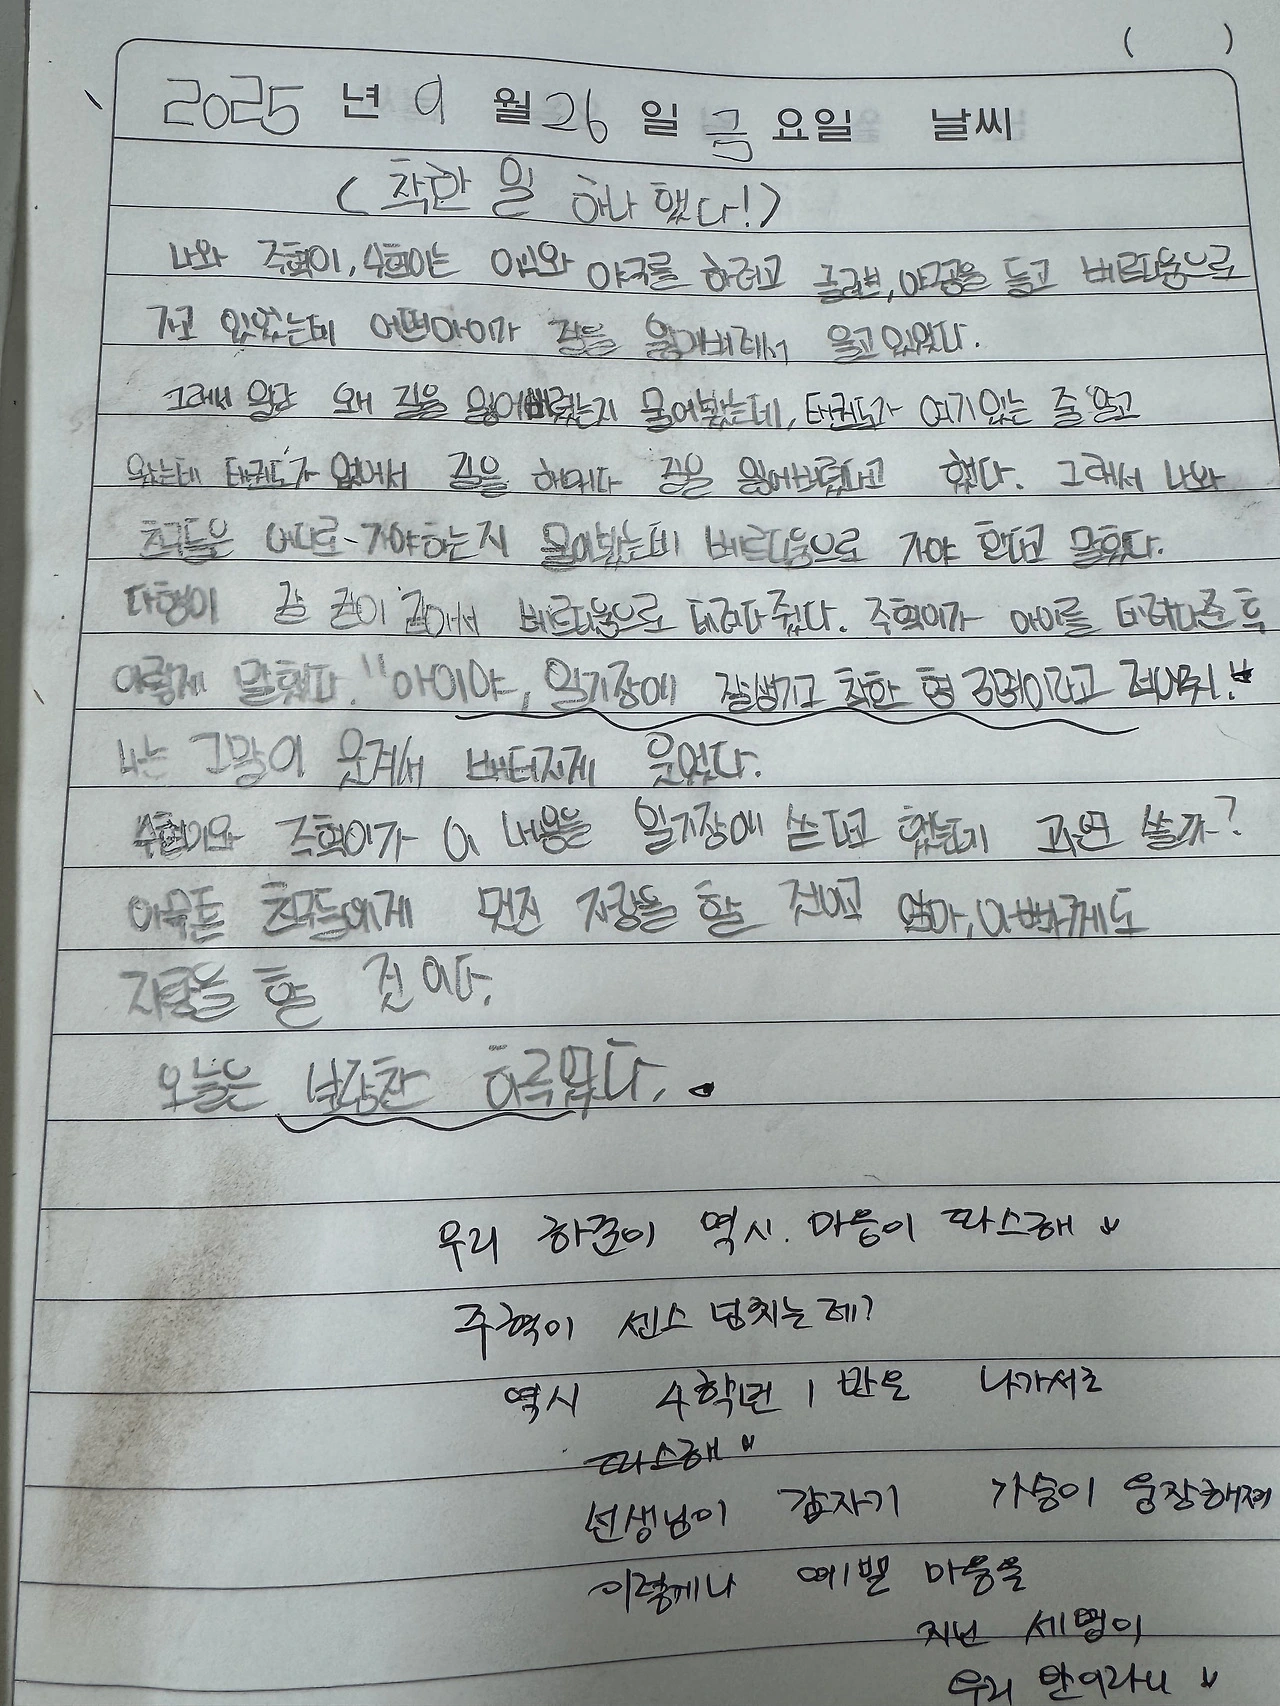 ( )
2025 년 9 월 26 일 금 요일 날씨
(착한 일 하나 했다!)
나와 주혁이, 수혁이는 야구를 하려고 글러브, 야구공을 들고 베르디움으로
가고 있었는데 어떤아이가 길을 잃어버려서 울고있었다.
그래서 일단 왜 길을 잃어버렸는지 물어봤는데, 태권도가 여기있는 줄 알고
왔는데 태권도가 없어서 길을 헤매다 길을 잃어버렸다고 했다. 그래서 나와
친구들은 어디로 가야하는지 물어봤는데 베르디움으로 가야 한다고 말했다.
다행이 갈 길이 같아서 베르디움으로 데려다 줬다. 주혁이가 아이를 데려다준 후
이렇게 말했다. "아이야, 일기장에 잘생기고 착한 형 이라고 적어줘!"
나는 그말이 웃겨서 배터지게 웃었다.
수혁이와 주혁이가 이 내용을 일기장에 쓴다고 했는데 과연 쓸까?
아무튼 친구들에게 먼저 자랑을 할 것이고 엄마, 아빠께도
자랑을 할 것이다.
오늘은 보람찬 하루였다.
우리 하준이 역시. 마음이 따스해
주혁이 센스 넘치는데?
역시 4학년 1반은 나가서도
따스해
선생님이 갑자기 가슴이 웅장해져
이렇게나 예쁜 마음을
지닌 세명이
우리 반이라니